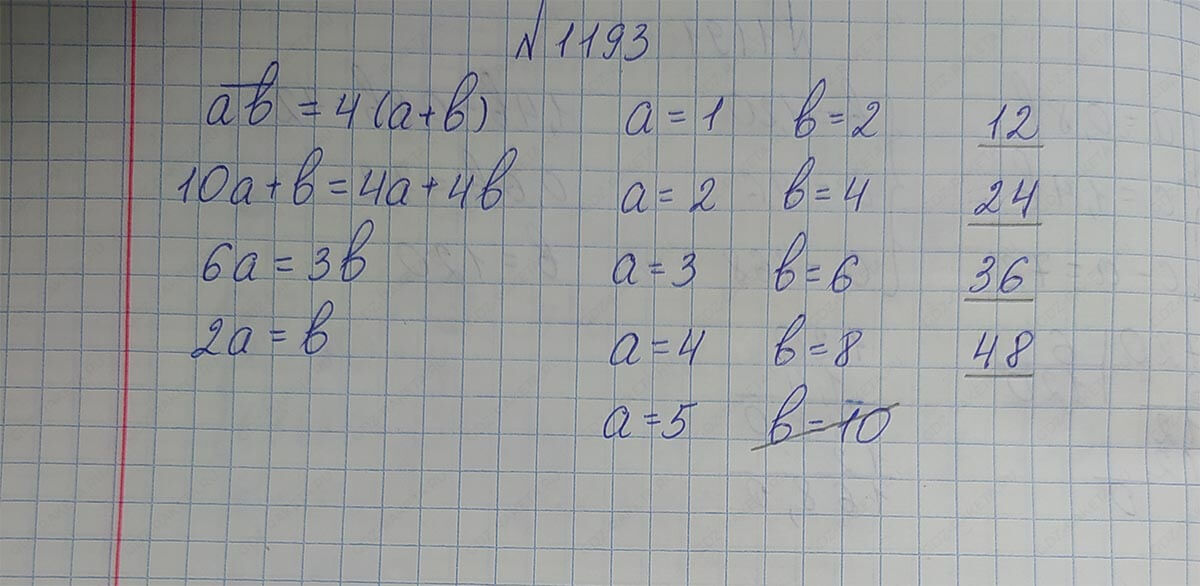 №1193
ab = 4(a+b) a = 1 b = 2 12
10a+b=4a+4b a = 2 b = 4 24
6a = 3b a = 3 b = 6 36
2a = b a = 4 b = 8 48
a = 5 b = 10